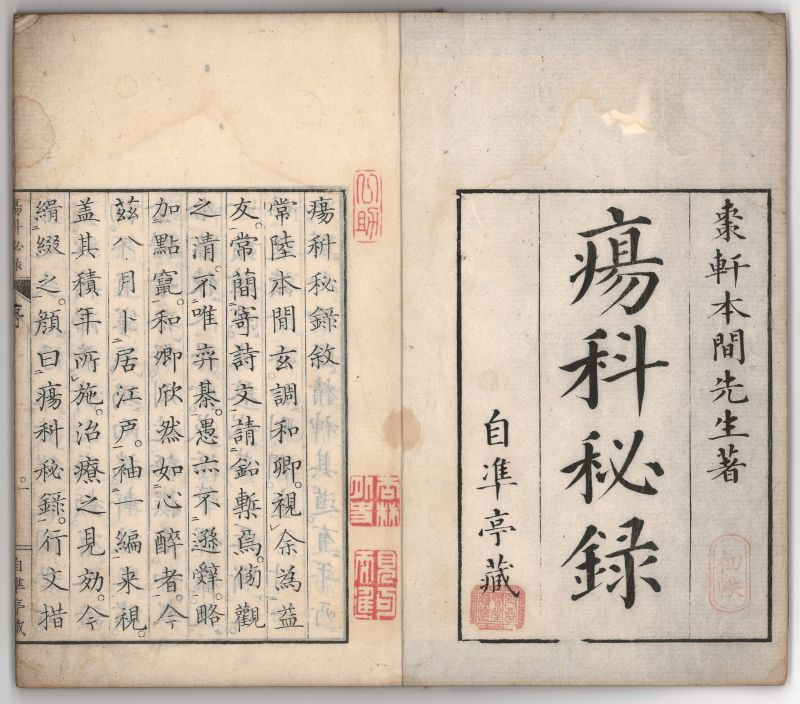 棗軒本間先生著
瘍科秘録
自準亭藏
瘍科秘録敘
常陸本間玄調和卿視余為益
友常簡寄詩文請鉛槧焉傍觀
之清不唯弈棊愚亦不遜辭略
加點竄和卿欣然如心醉者今
茲八月卜居江戸袖一編来視
盖其積年所施治療之見効今
緝綴之顔曰瘍科秘録行文措
瘍科秘録
序
一
自準亭藏
公助
初帙